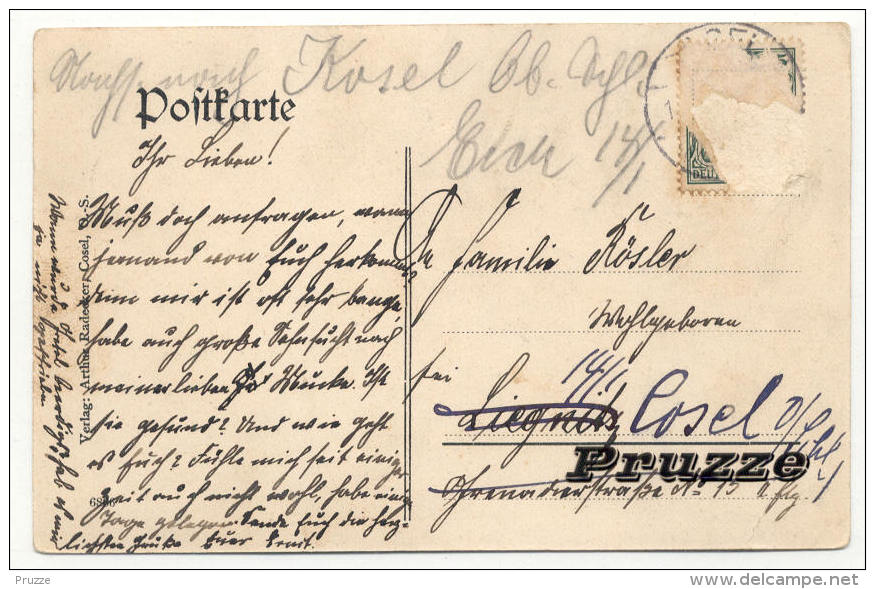 Nachs. nach Kosel Ob. Schl.
Postkarte
14/1
DEU
Ihr Lieben!
Muß doch anfragen, wann
jemand von Euch herkommt
denn mir ist oft sehr bange,
habe auch große Sehnsucht nach
meiner lieben Mucke. Ist
sie gesund? Und wie geht
es Euch? Fühle mich seit einiger
Zeit auch nicht wohl, habe einige
Tage gelegen. Sende Euch die herz-
lichsten Grüße Euer Ernst.
Verlag: Arthur Radecker, Cosel, O.-S.
Familie Rösler
Wohlgeboren
bei
14/1
Liegnitz Cosel O/Schl.
Pruzze
Grenadierstraße No 15
Pruzze
www.delcampe.net